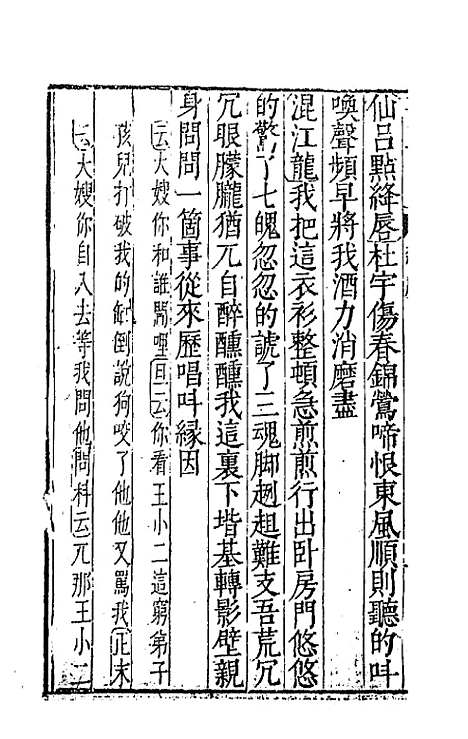 仙呂點絳唇杜宇傷春錦鶯啼恨東風順則聽的呌
喚聲頻早將我酒力消磨盡
混江龍我把這衣衫整頓急煎煎行出卧房門悠悠
的驚了七魄忽忽的諕了三魂脚趔趄難支吾荒冗
冗眼朦朧猶兀自醉醺醺我這裏下堦基轉影壁親
身問問一箇事從來歷唱呌緣因
云大嫂你和誰鬧哩旦云你看王小二這窮弟子
孩兒打破我的倒說狗咬了他他又罵我正末
云大嫂你自入去等我問他問科云兀那王小二